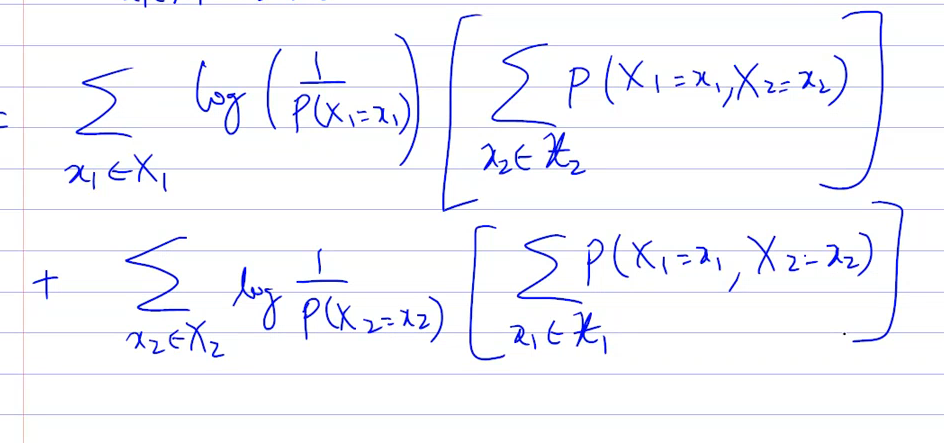 = ∑_{x₁∈X₁} log (1/P(X₁=x₁)) [∑_{x₂∈𝒳₂} P(X₁=x₁, X₂=x₂)]
+ ∑_{x₂∈X₂} log 1/P(X₂=x₂) [∑_{x₁∈𝒳₁} P(X₁=x₁, X₂=x₂)]